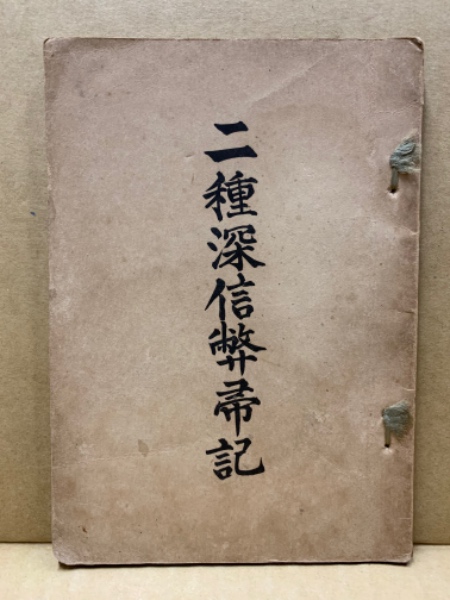 二種深信弊帚記